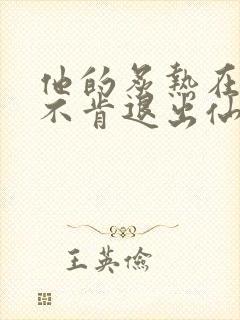 他的炙熱在
不肯退出仙
王英儉